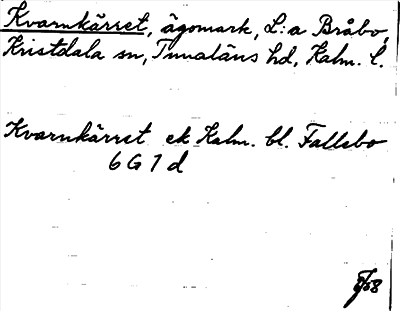 Kvarnkärret, ägomark, L:a Bråbo,
Kristdala sn, Tunaläns hd, Kalm. l.
Kvarnkärret ek Kalm. bl. Fallebo
6 G 1 d